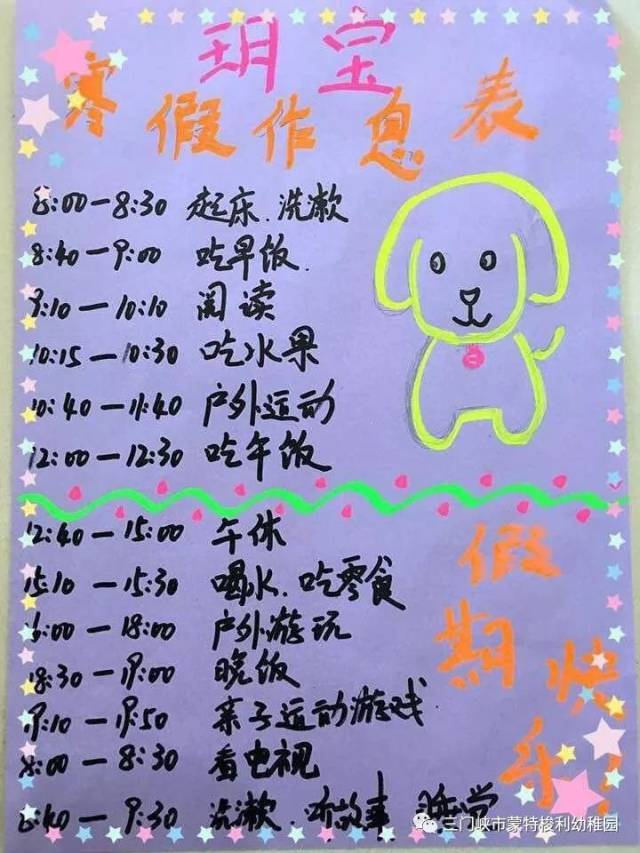 玥宝
寒假作息表
8:00—8:30 起床.洗漱
8:40—9:00 吃早饭.
9:10—10:10 阅读
10:15—10:30 吃水果
10:40—11:40 户外运动
12:00—12:30 吃午饭
12:40—15:00 午休
15:10—15:30 喝水.吃零食
16:00—18:00 户外游玩
18:30—19:00 晚饭
19:10—19:50 亲子运动游戏
8:00—8:30 看电视
8:40—9:30 洗漱.听故事 睡觉
假期快乐!
三门峡市蒙特梭利幼稚园